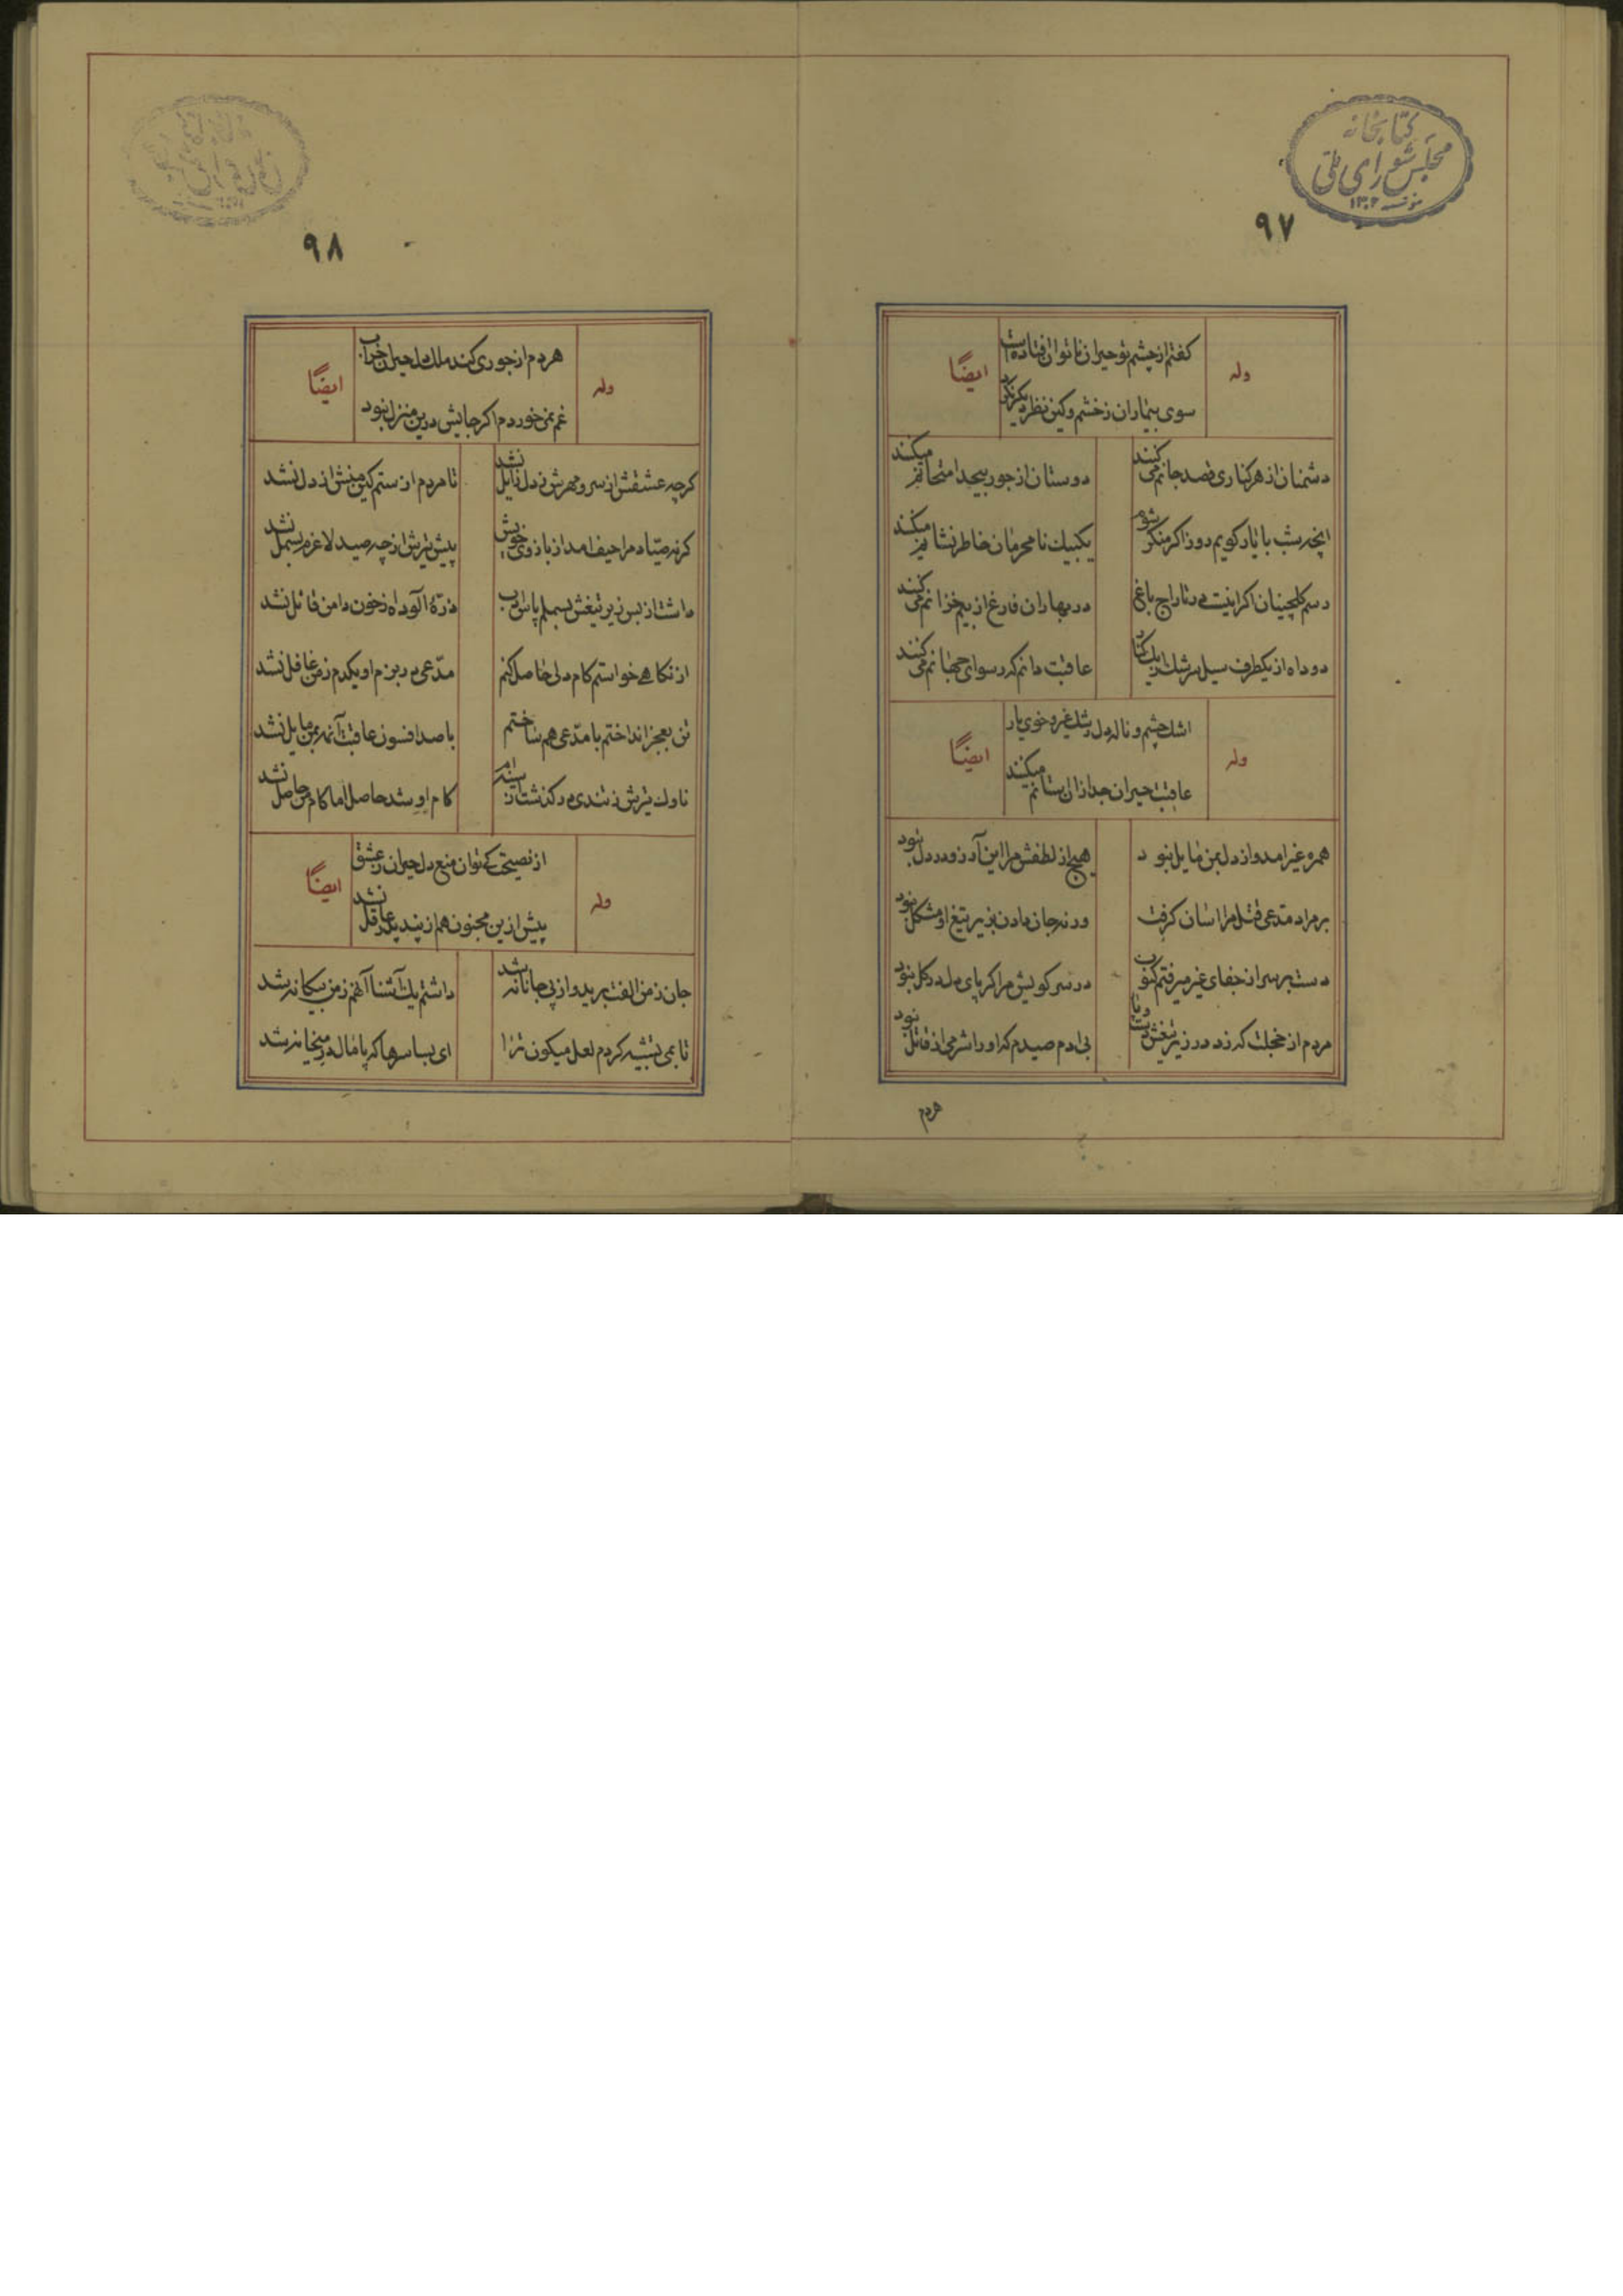 کتابخانه
مجلس شورای ملی
۱۳۰۲
۹۷
وله
کفتم از چشم تو حیران ناتوان فتاده است
ایضاً
سوی بیماران ز خشم و کین نظر دیکر نکرد
دشمنان از هر کناری قصد جانم می کنند
دوستان از جور بیحد امتحانم میکنند
انچه شب با یار کویم روز اکر منکر شوم
یکبیک نامحرمان خاطر نشانم میکنند
رسم کلچینان اکر اینست در تاراج باغ
در بهاران فارغ از بیم خزانم می کنند
دود اه از یکطرف سیل سرشک از یک کنار
عاقبت دانم که رسوای جهانم می کنند
وله
اشک چشم و ناله دل رشک غیر و خوی یار
ایضاً
عاقبت حیران جدا زان استانم میکنند
همره غیر امد و از دل بمن مایل نبود
هیچ از لطفش مرا این آرزو در دل نبود
بر مراد مدعی قتل مرا اسان کرفت
ورنه جان دادن بزیر تیغ او مشکل نبود
دست بر سر از جفای غیر میرفتم کنون
در سر کویش مرا کر پای دل در کل نبود
مردم از خجلت که زد در زیر تیغش دست و پا
بی ادم صیدم که او را شرمی از قاتل نبود
هردم
۹۸
وله
هردم از جوری کند ملک دل حیران خراب
ایضاً
غم نمی خوردم اکر جایش درین منزل نبود
کرچه عشقش از سر و مهرش ز دل زایل نشد
تا مردم از ستم کین منش از دل نشد
کرنه صیاد مرا حیف امد از بازوی خویش
پیش تیرش از چه صید لاغرم بسمل نشد
داشت از بس زیر تیغش بسملم پاس ادب
ذرهٔ الوده از خون دامن قاتل نشد
از نکاهی خواستم کام دلی حاصل کنم
مدعی در بزم او یکدم ز من غافل نشد
تن بعجز انداختم با مدعی هم ساختم
با صد افسون عاقبت آنمه بمن مایل نشد
ناوک تیرش ز تندی در کذشت از سینه ام
کام او شد حاصل اما کام من حاصل نشد
وله
از نصیحت کی توان منع دل حیران ز عشق
ایضاً
پیش ازین مجنون هم از پند پدر عاقل نشد
جان ز من الفت برید و از پی جانانه شد
داشتم یک آشنا آنهم ز من بیکانه شد
تا بمی تشبیه کردم لعل میکون ترا
ای بسا سرها که پامال در میخانه شد